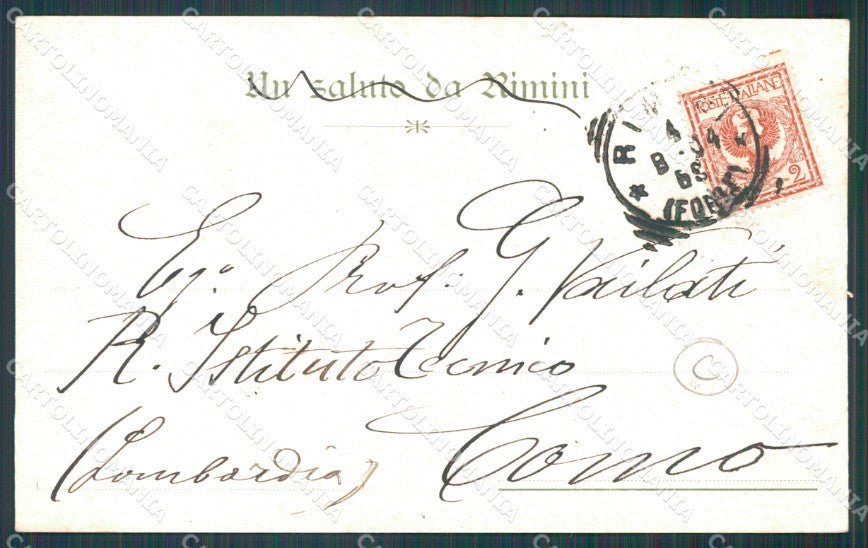 Un saluto da Rimini
POSTE ITALIANE
2
RIMINI
4
8-04
6S
(FORLÌ)
Ej.º Prof: G. Vailati
R. Istituto Tecnico
(Lombardia) Como
C
CARTOLINOMANIA